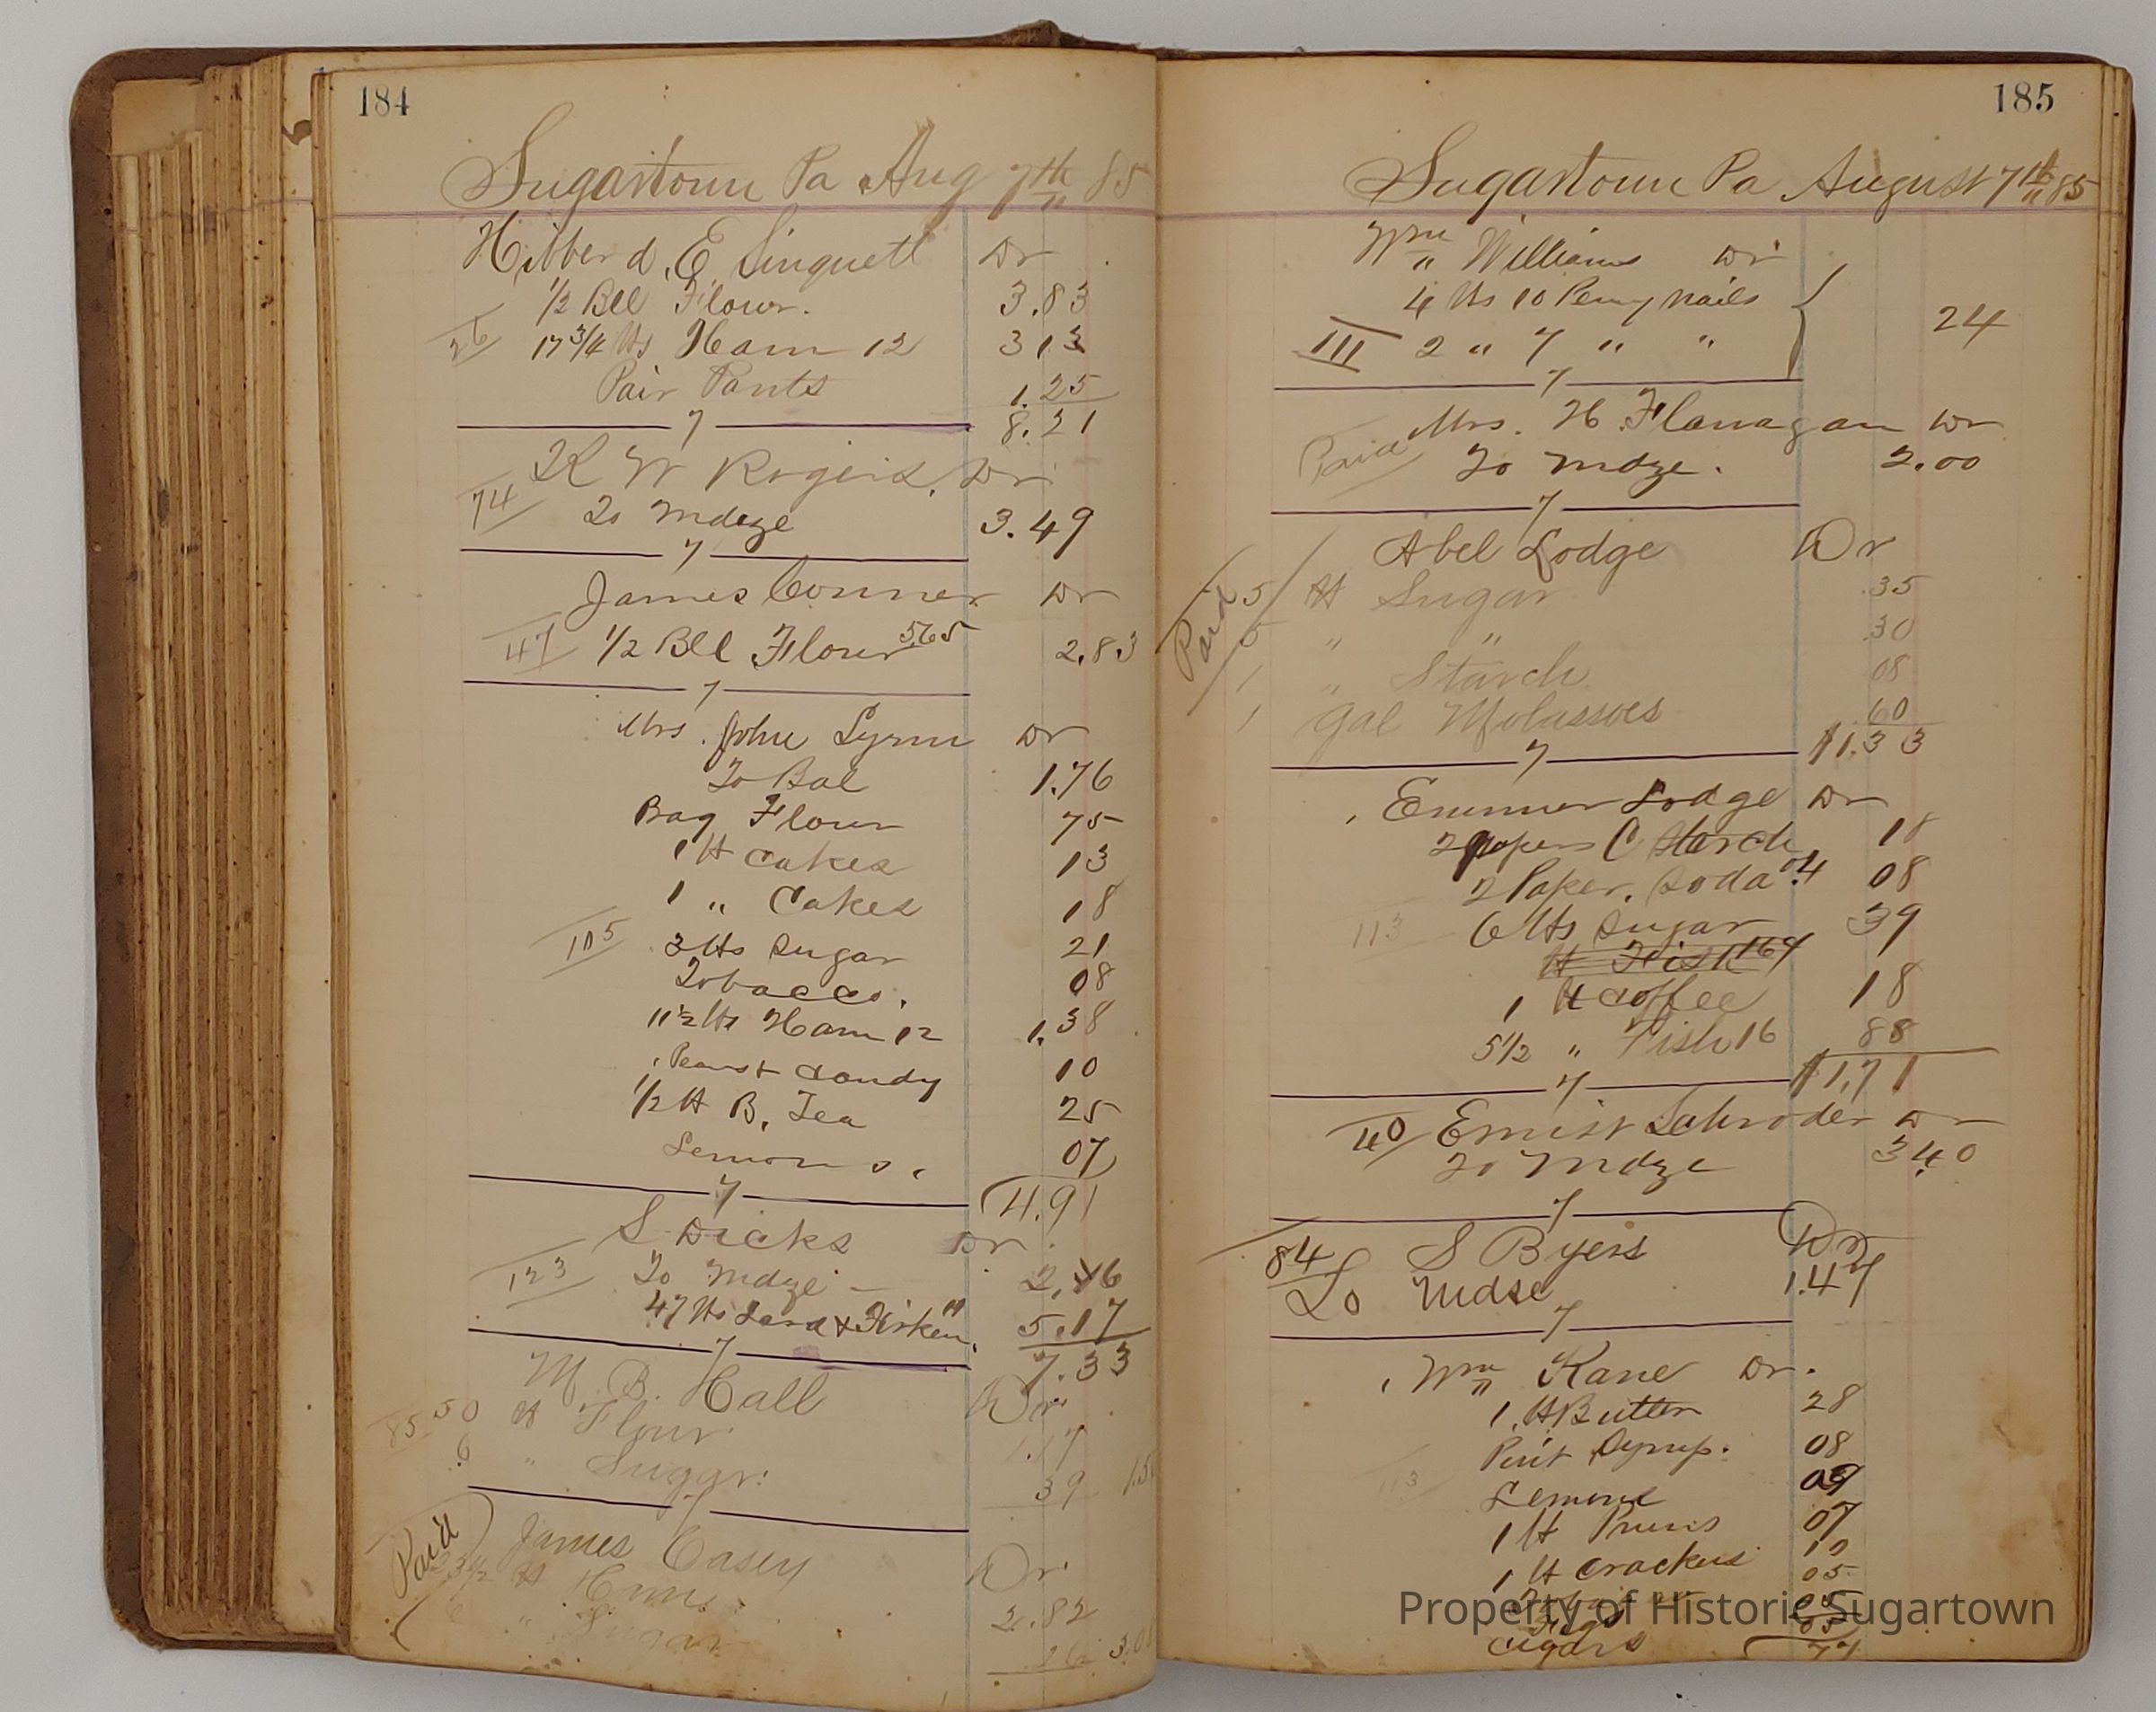 184
Sugartown Pa Aug 7th 85
Hibberd E Dr
1/2 Bll Flour. 3.83
26 17 3/4 lbs Ham 12 3 13
Pair Pants 1.25
7 8.21
K W Rogers. Dr
74 To Mdze 3.49
7
James Conner Dr
47 1/2 Bll Flour 565 2.83
7
Mrs. John Lynn Dr
To Bal 1.76
Bag Flour 75
1 lb Cakes 13
1 " Cakes 18
105 3 lbs Sugar 21
Tobacco. 08
11 1/2 lbs Ham 12 1.38
Candy 10
1/2 lb B. Tea 25
Lemons. 07
7 4.91
S Dicks Dr
123 To Mdze — 2.16
47 lbs Lard & Firken 11 5.17
7 7.33
M. B. Hall Dr
85 50 lb Flour 1.17
6 " Sugar: 39
7
Paid James Casey Dr
lb Ham 2.82
6 " Sugar
185
Sugartown Pa August 7th 85
Wm Williams Dr
4 lbs 10 Penny nails
111 2 " 7 " " 24
7
Mrs. H. Flanagan Dr
Paid To Mdze. 2.00
7
Abel Lodge Dr
Paid 5 lb Sugar .35
5 " " .30
1 " Starch 08
1 Gal Molassoes 60
7 $1.33
Emmer Lodge Dr
2 papers C Starch 18
2 Paper. Soda 04 08
113 6 lbs Sugar 39
lb Fish 16
1 lb Coffee 18
5 1/2 " Fish 16 88
7 $1.71
40 Ernist Schroder Dr
To Mdze 3.40
7
84 S Byers Dr
To Mdse 1.47
7
Wm Kane Dr.
1 lb Butter 28
Pint Syrup. 08
113 Lemons 09
1 lb Pruns 07
1 lb Crackers 10
05
Figs 05
Cigars 05
77
Property of Historic Sugartown